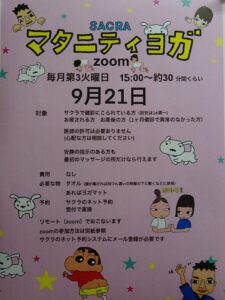 SACRA
マタニティヨガ
zoom
毎月第3火曜日 15:00〜約30分間くらい
9月21日
対象 サクラで健診にこられている方
お産される方 お産後の方(1ヶ月健診で異常のなかった方)
医師の許可は必要ありません
(心配な方は相談してください)
安静の指示のある方も
最初のマッサージの所だけなら行えます
費用 なし
必要な物 タオル
あればヨガマット
予約 サクラのネット予約
受付で直接
リモート(zoom)でおこないます
zoomの参加方法は別紙参照
サクラのネット予約システムにメール登録が必要です